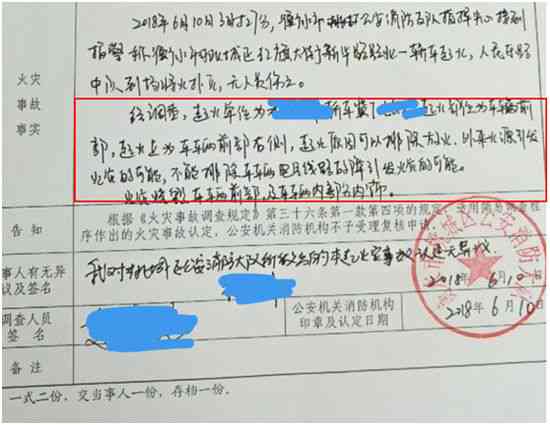 2018年6月10日3时27分,衡水市 公安消防支队指挥中心接到
报警称衡水市桃城区红旗大街新华路路北一轿车起火,人民东路
火灾
中队到场将火扑灭,无人员伤亡。
事故
事实
经调查,起火单位为 轿车冀T 起火部位为车辆前
部,起火点为车辆前部右侧,起火原因可以排除放火、外来火源引发
火灾的可能,不能排除车辆电气线路故障引发火灾的可能。
火灾烧毁车辆前部及车辆内部分内饰。
告知
根据《火灾事故调查规定》第三十六条第一款第四项的规定,适用简易调查程
序作出的火灾事故认定,公安机关消防机构不予受理复核申请。
事人有无异
议及签名
我对桃城区公安消防大队所做出的本起火灾事故认定无异议
2018年6月10日
调查人员
签名
公安机关消防机构
印章及认定日期
2018年6月10日
桃城区公安消防大队
备注
一式二份,交当事人一份,存档一份。